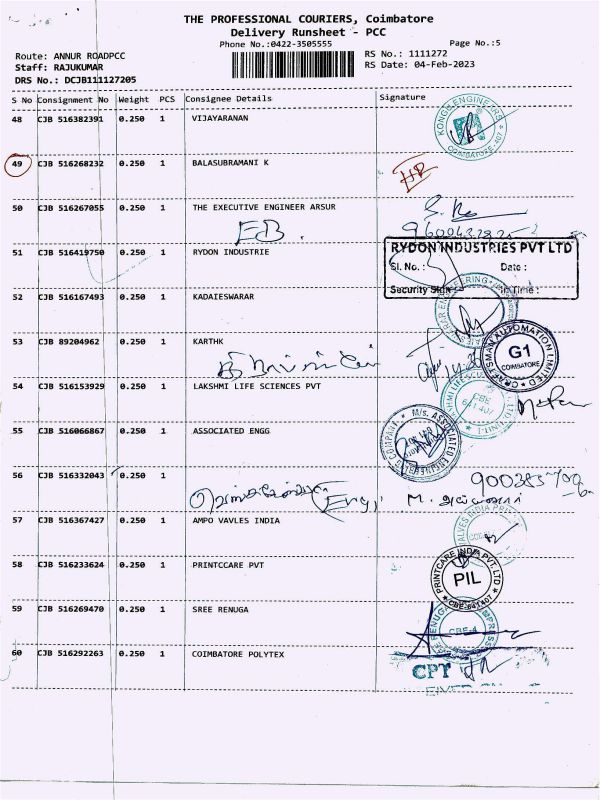 THE PROFESSIONAL COURIERS, Coimbatore
Delivery Runsheet - PCC
Phone No.:0422-3505555
Page No.:5
Route: ANNUR ROADPCC
RS No.: 1111272
Staff: RAJUKUMAR
RS Date: 04-Feb-2023
DRS No.: DCJB111127205
S No Consignment No Weight PCS Consignee Details Signature
48 CJB 516382391 0.250 1 VIJAYARANAN
KONGU ENGINEERS
COIMBATORE-407
49 CJB 516268232 0.250 1 BALASUBRAMANI K
50 CJB 516267055 0.250 1 THE EXECUTIVE ENGINEER ARSUR
EB.
51 CJB 516419750 0.250 1 RYDON INDUSTRIE
RYDON INDUSTRIES PVT LTD
Sl. No.: Date :
Security Sign In Time :
52 CJB 516167493 0.250 1 KADAIESWARAR
53 CJB 89204962 0.250 1 KARTHK
CRAFTSMAN AUTOMATION LIMITED
G1
COIMBATORE
54 CJB 516153929 0.250 1 LAKSHMI LIFE SCIENCES PVT
55 CJB 516066867 0.250 1 ASSOCIATED ENGG
M/s. ASSOCIATED ENGINEERING COMPANY
56 CJB 516332043 0.250 1
57 CJB 516367427 0.250 1 AMPO VAVLES INDIA
58 CJB 516233624 0.250 1 PRINTCCARE PVT
PRINTCARE INDIA PVT. LTD
PIL
CBE-641407
59 CJB 516269470 0.250 1 SREE RENUGA
CBE-4
60 CJB 516292263 0.250 1 COIMBATORE POLYTEX
CPT